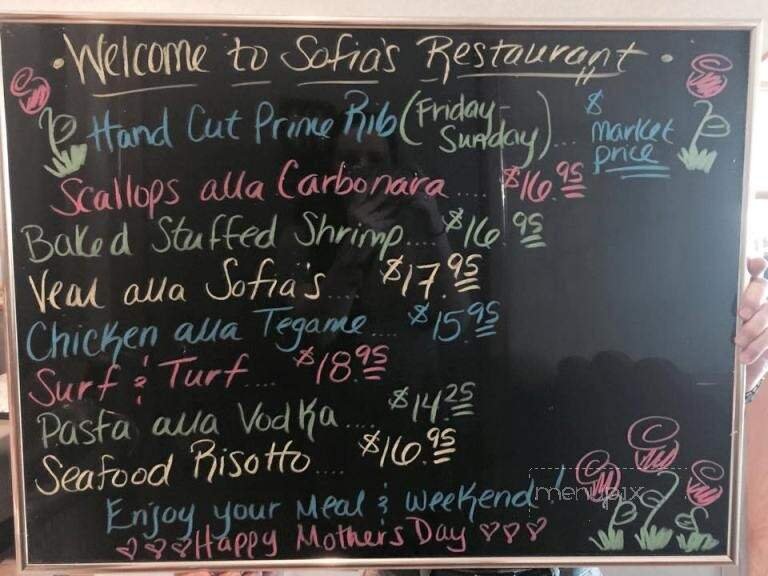 • Welcome to Sofia's Restaurant •
Hand Cut Prime Rib (Friday - Sunday)... $ market price
Scallops alla Carbonara .... $16.95
Baked Stuffed Shrimp.... $16.95
Veal alla Sofia's .... $17.95
Chicken alla Tegame .... $15.95
Surf & Turf .... $18.95
Pasta alla Vodka .... $14.25
Seafood Risotto .... $16.95
Enjoy your Meal & weekend!
menupix
Happy Mothers Day